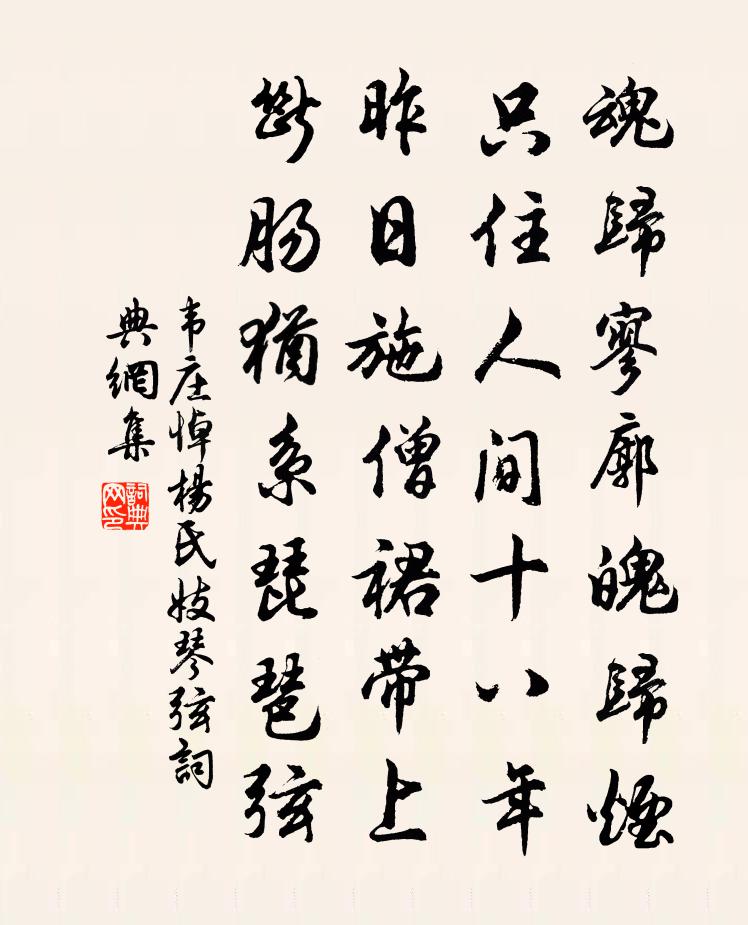 魂歸寥廓魄歸煙
只住人間十八年
昨日施僧裙帶上
斷腸猶系琵琶弦
韦庄悼楊氏妓琴弦詞
典網集
詞典網印